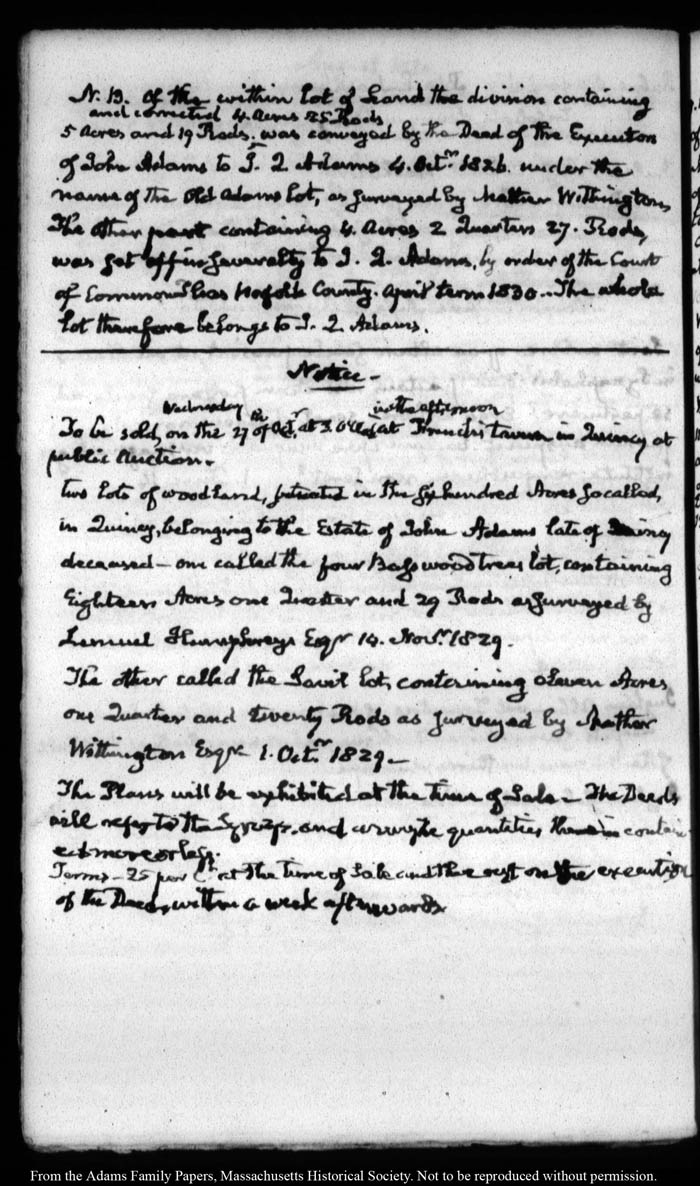 N. B. Of the within lot of Land the division containing
and corrected 4. Acres 25 Rods
5 Acres and 19 Rods, was conveyed by the Deed of the Executors
of John Adams to J. Q. Adams 4. Octr. 1826. under the
name of the Old Adams lot, as surveyed by Mather Withington,
The other part containing 4. Acres 2 Quarters 27. Rods,
was set off in severalty to J. Q. Adams, by order of the Court
of Common Pleas Norfolk County. April term 1830.. The whole
lot therefore belongs to J. Q Adams.
Notice.
Wednesday in the afternoon
To be sold, on the 27 of Octr. at 3. O'Clock at French's tavern in Quincy at
public Auction.
two lots of woodland, situated in the six hundred Acres so called,
in Quincy, belonging to the Estate of John Adams late of Quincy
deceased — one called the four Basswood trees lot, containing
Eighteen Acres one Quarter and 29 Rods as surveyed by
Lemuel Humphreys Esqr 14. Novr. 1829.
The other called the Savil lot, containing eleven Acres
one Quarter and twenty Rods as surveyed by Mather
Withington Esqr. 1. Octr. 1829 —
The Plans will be exhibited at the time of Sale — The Deeds
will refer to the and the quantities therein contain
ed more or less.
Terms — 25 per Ct. at the time of Sale and the rest on the execution
of the Deeds, within a week afterwards
From the Adams Family Papers, Massachusetts Historical Society. Not to be reproduced without permission.